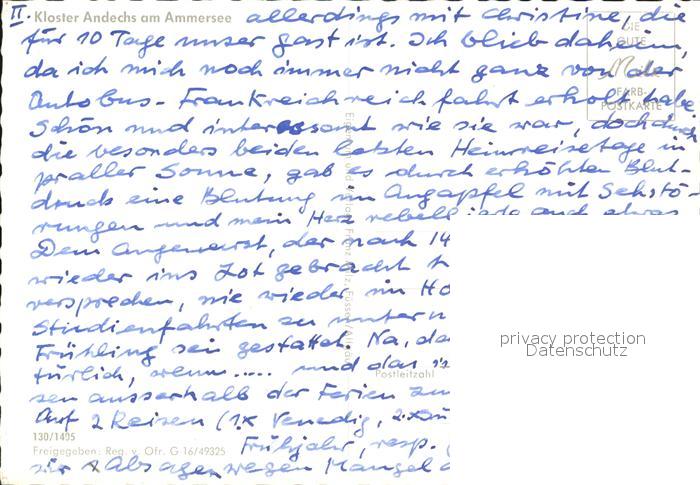 II. Kloster Andechs am Ammersee allerdings mit Christine, die
für 10 Tage unser Gast ist. Ich blieb daheim,
da ich mich noch immer nicht ganz von der
Autobus-Frankreichreichfahrt erholt habe
Schön und interessant wie sie war, doch durch
die besonders beiden letzten Heimreisetage in
praller Sonne, gab es durch erhöhten Blut-
druck eine Blutung im Augapfel mit Sehstö-
rungen und mein Herz rebellierte auch etwas
Dem Augenarzt, der nach 14
wieder ins Lot gebracht
versprechen, nie wieder im
Studienfahrten zu
Frühling sei gestattet. Na, da
türlich, wenn..... und das
sen ausserhalb der Ferien
Auf 2 Reisen (1x Venedig,
Frühjahr, resp.
Absagen wegen Mangel
DIE
GUTE
FARB-
POSTKARTE
Postleitzahl
130/1495
Freigegeben: Reg. v. Ofr. G 16/49325
privacy protection
Datenschutz